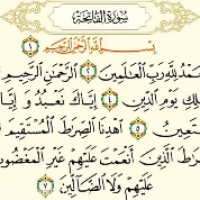 سُورَةُ الْفَاتِحَةِ
بِسْمِ اللَّهِ الرَّحْمَٰنِ الرَّحِيمِ ١
حَمْدُ لِلَّهِ رَبِّ الْعَالَمِينَ ٢ الرَّحْمَٰنِ الرَّحِيمِ
لِكِ يَوْمِ الدِّينِ ٤ إِيَّاكَ نَعْبُدُ وَإِيَّا
تَعِينُ ٥ اهْدِنَا الصِّرَاطَ الْمُسْتَقِيمَ
رَاطَ الَّذِينَ أَنْعَمْتَ عَلَيْهِمْ غَيْرِ الْمَغْضُو
عَلَيْهِمْ وَلَا الضَّالِّينَ ٧